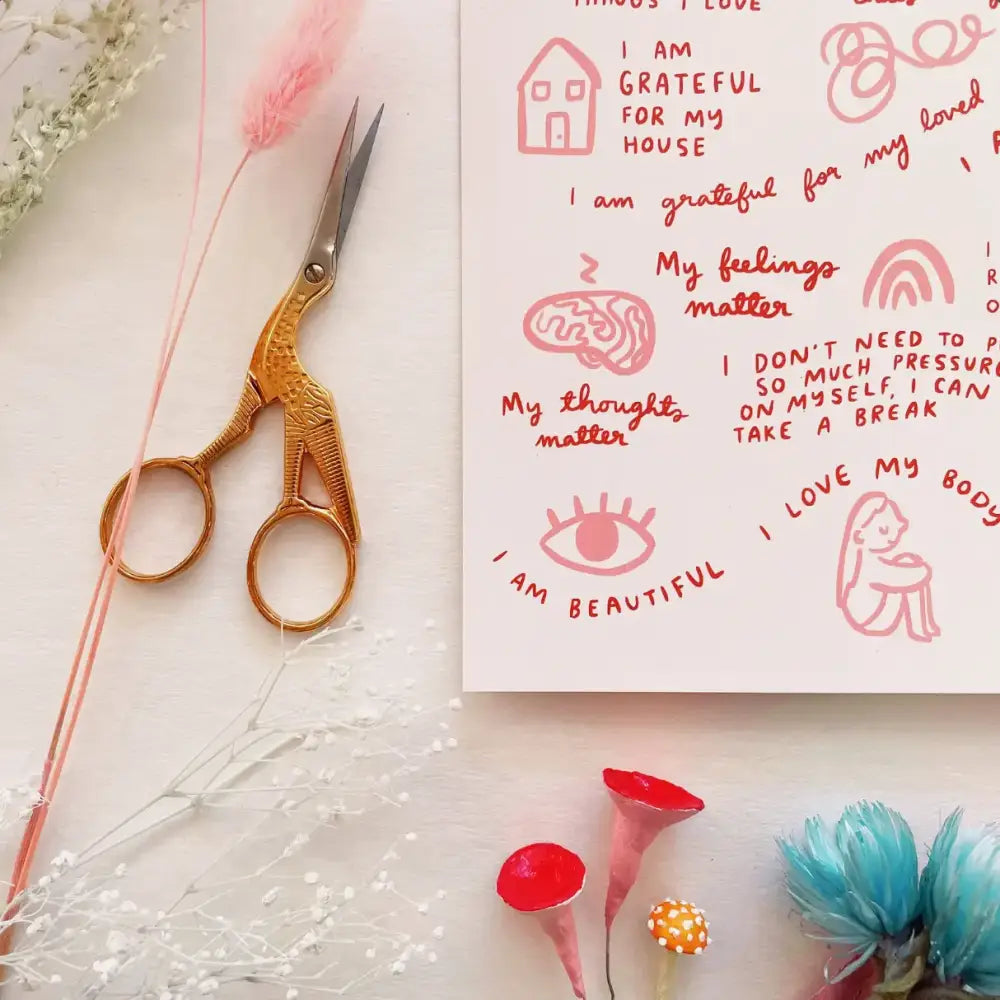 THINGS I LOVE
I AM
GRATEFUL
FOR MY
HOUSE
I am grateful for my loved
I
My feelings
matter
I
R
O
My thoughts
matter
I DON'T NEED TO P
SO MUCH PRESSURE
ON MYSELF, I CAN
TAKE A BREAK
I AM BEAUTIFUL
I LOVE MY BODY